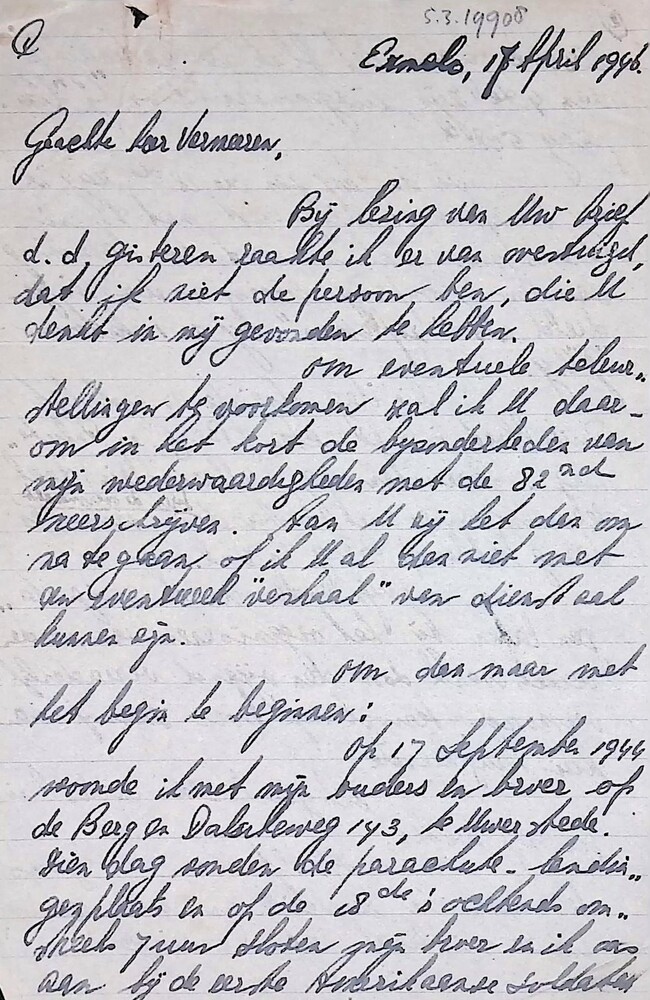 5.3.19908
Ermelo, 17 April 1946.
Geachte heer Vermeeren,
Bij lezing van Uw brief
d.d. gisteren raakte ik er van overtuigd,
dat ik niet de persoon ben, die U
denkt in mij gevonden te hebben.
Om eventuele teleur„
stellingen te voorkomen zal ik U daar-
om in het kort de bijzonderheden van
mijn wederwaardigheden met de 82nd
neerschrijven. Aan U zij het dan om
na te gaan, of ik U al dan niet met
een eventueel "verhaal" van dienst zal
kunnen zijn.
Om dan maar met
het begin te beginnen:
Op 17 September 1944
woonde ik met mijn ouders en broer op
de Berg en Dalscheweg 143, te Uwer stede.
Dien dag vonden de parachute-landin„
gen plaats en op de 18de 's ochtends om„
streeks 7 uur sloten mijn broer en ik ons
aan bij de eerste Amerikaanse soldaten